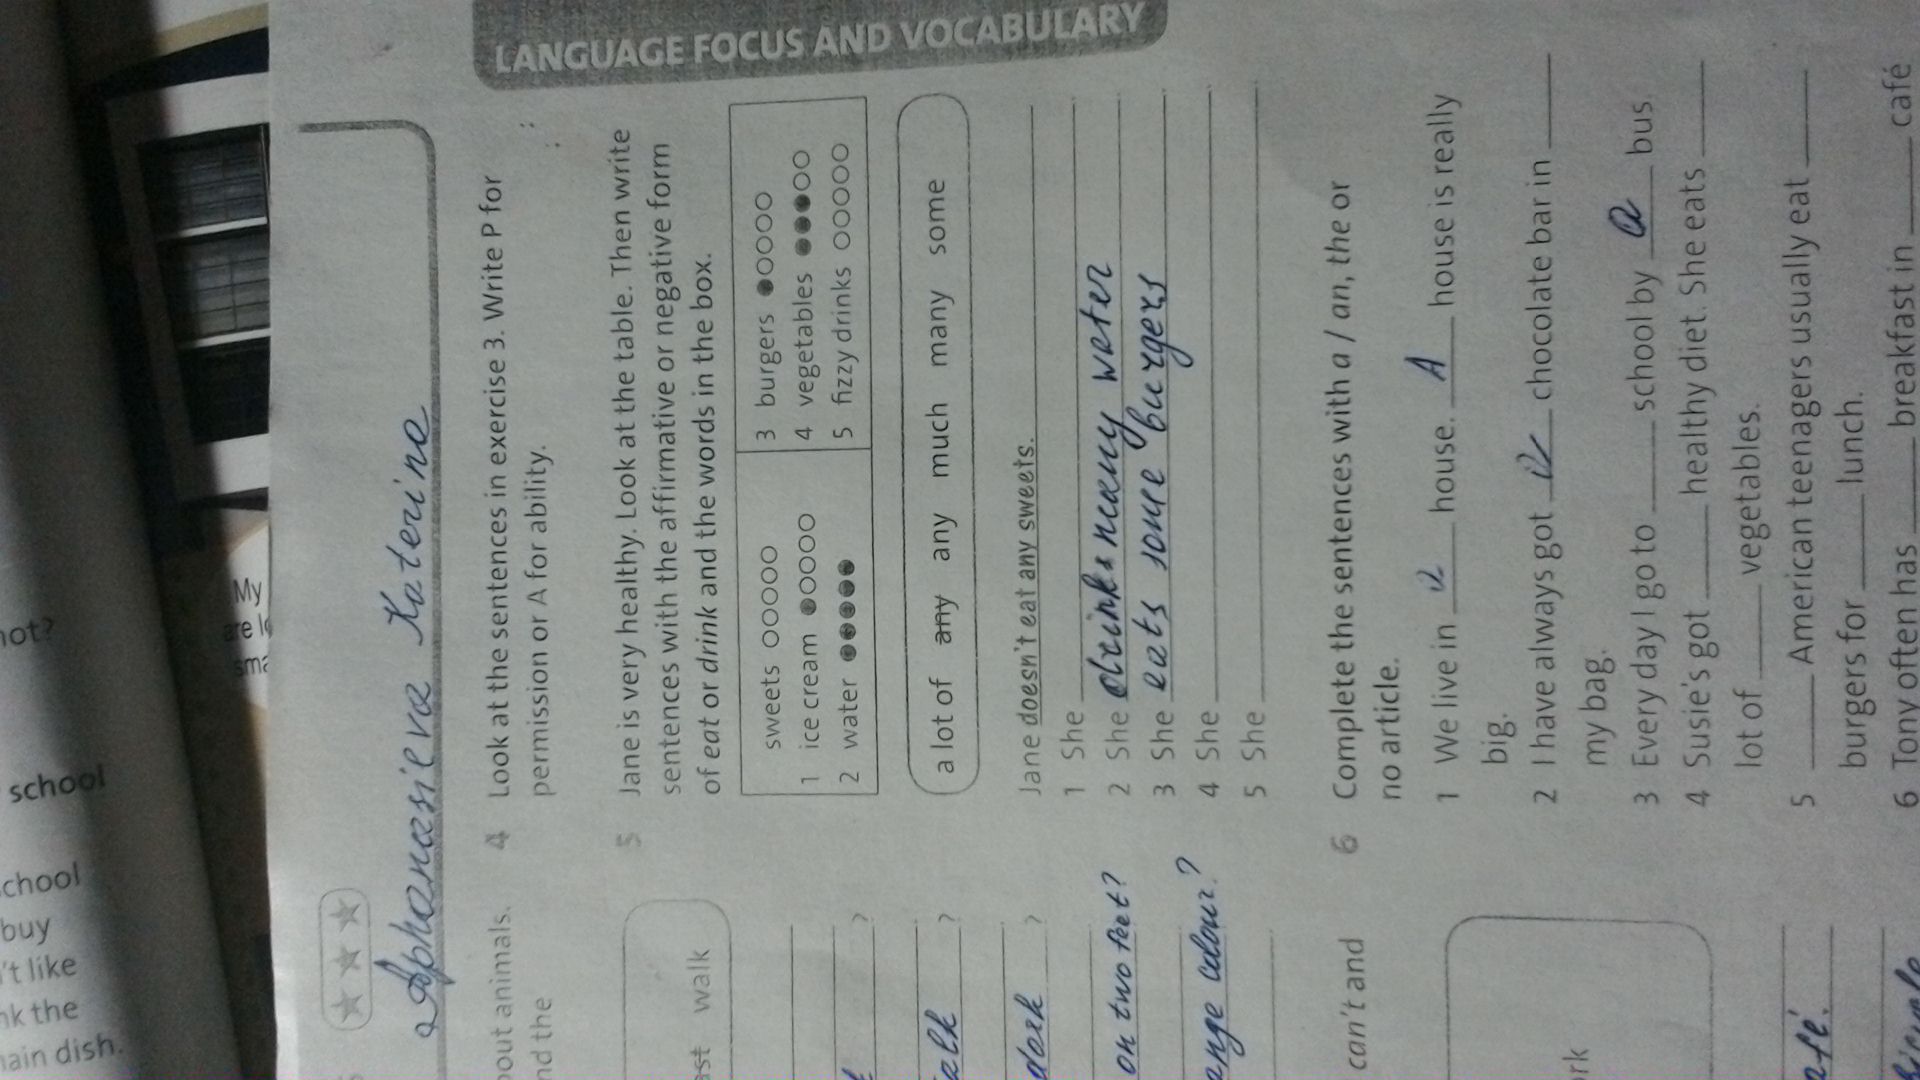 LANGUAGE FOCUS AND VOCABULARY
Aphanasieva Katerina
4 Look at the sentences in exercise 3. Write P for
permission or A for ability.
5 Jane is very healthy. Look at the table. Then write
sentences with the affirmative or negative form
of eat or drink and the words in the box.
sweets ○○○○○
1 ice cream ●○○○○
2 water ●●●●●
3 burgers ●○○○○
4 vegetables ●●●○○
5 fizzy drinks ○○○○○
a lot of any any much many some
Jane doesn't eat any sweets.
1 She
2 She drinks many weter
3 She eats some burgers
4 She
5 She
6 Complete the sentences with a / an, the or
no article.
1 We live in a house. A house is really
big.
2 I have always got a chocolate bar in
my bag.
3 Every day I go to school by a bus
4 Susie's got healthy diet. She eats
lot of vegetables.
5 American teenagers usually eat
burgers for lunch.
6 Tony often has breakfast in café
bout animals.
nd the
ast walk
?
alk ?
dark ?
on two feet?
ange colour?
can't and
rk
afé.
not?
school
chool
buy
't like
nk the
ain dish.
My
are lo
sma